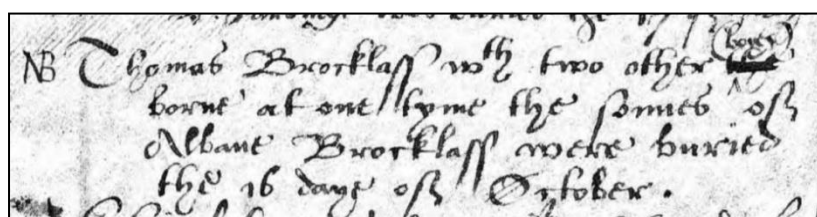 was buried the
boyes
NB Thomas Brocklass wth two other
borne at one tyme the sonnes of
Albane Brocklass were buried
the 16 daye of October.